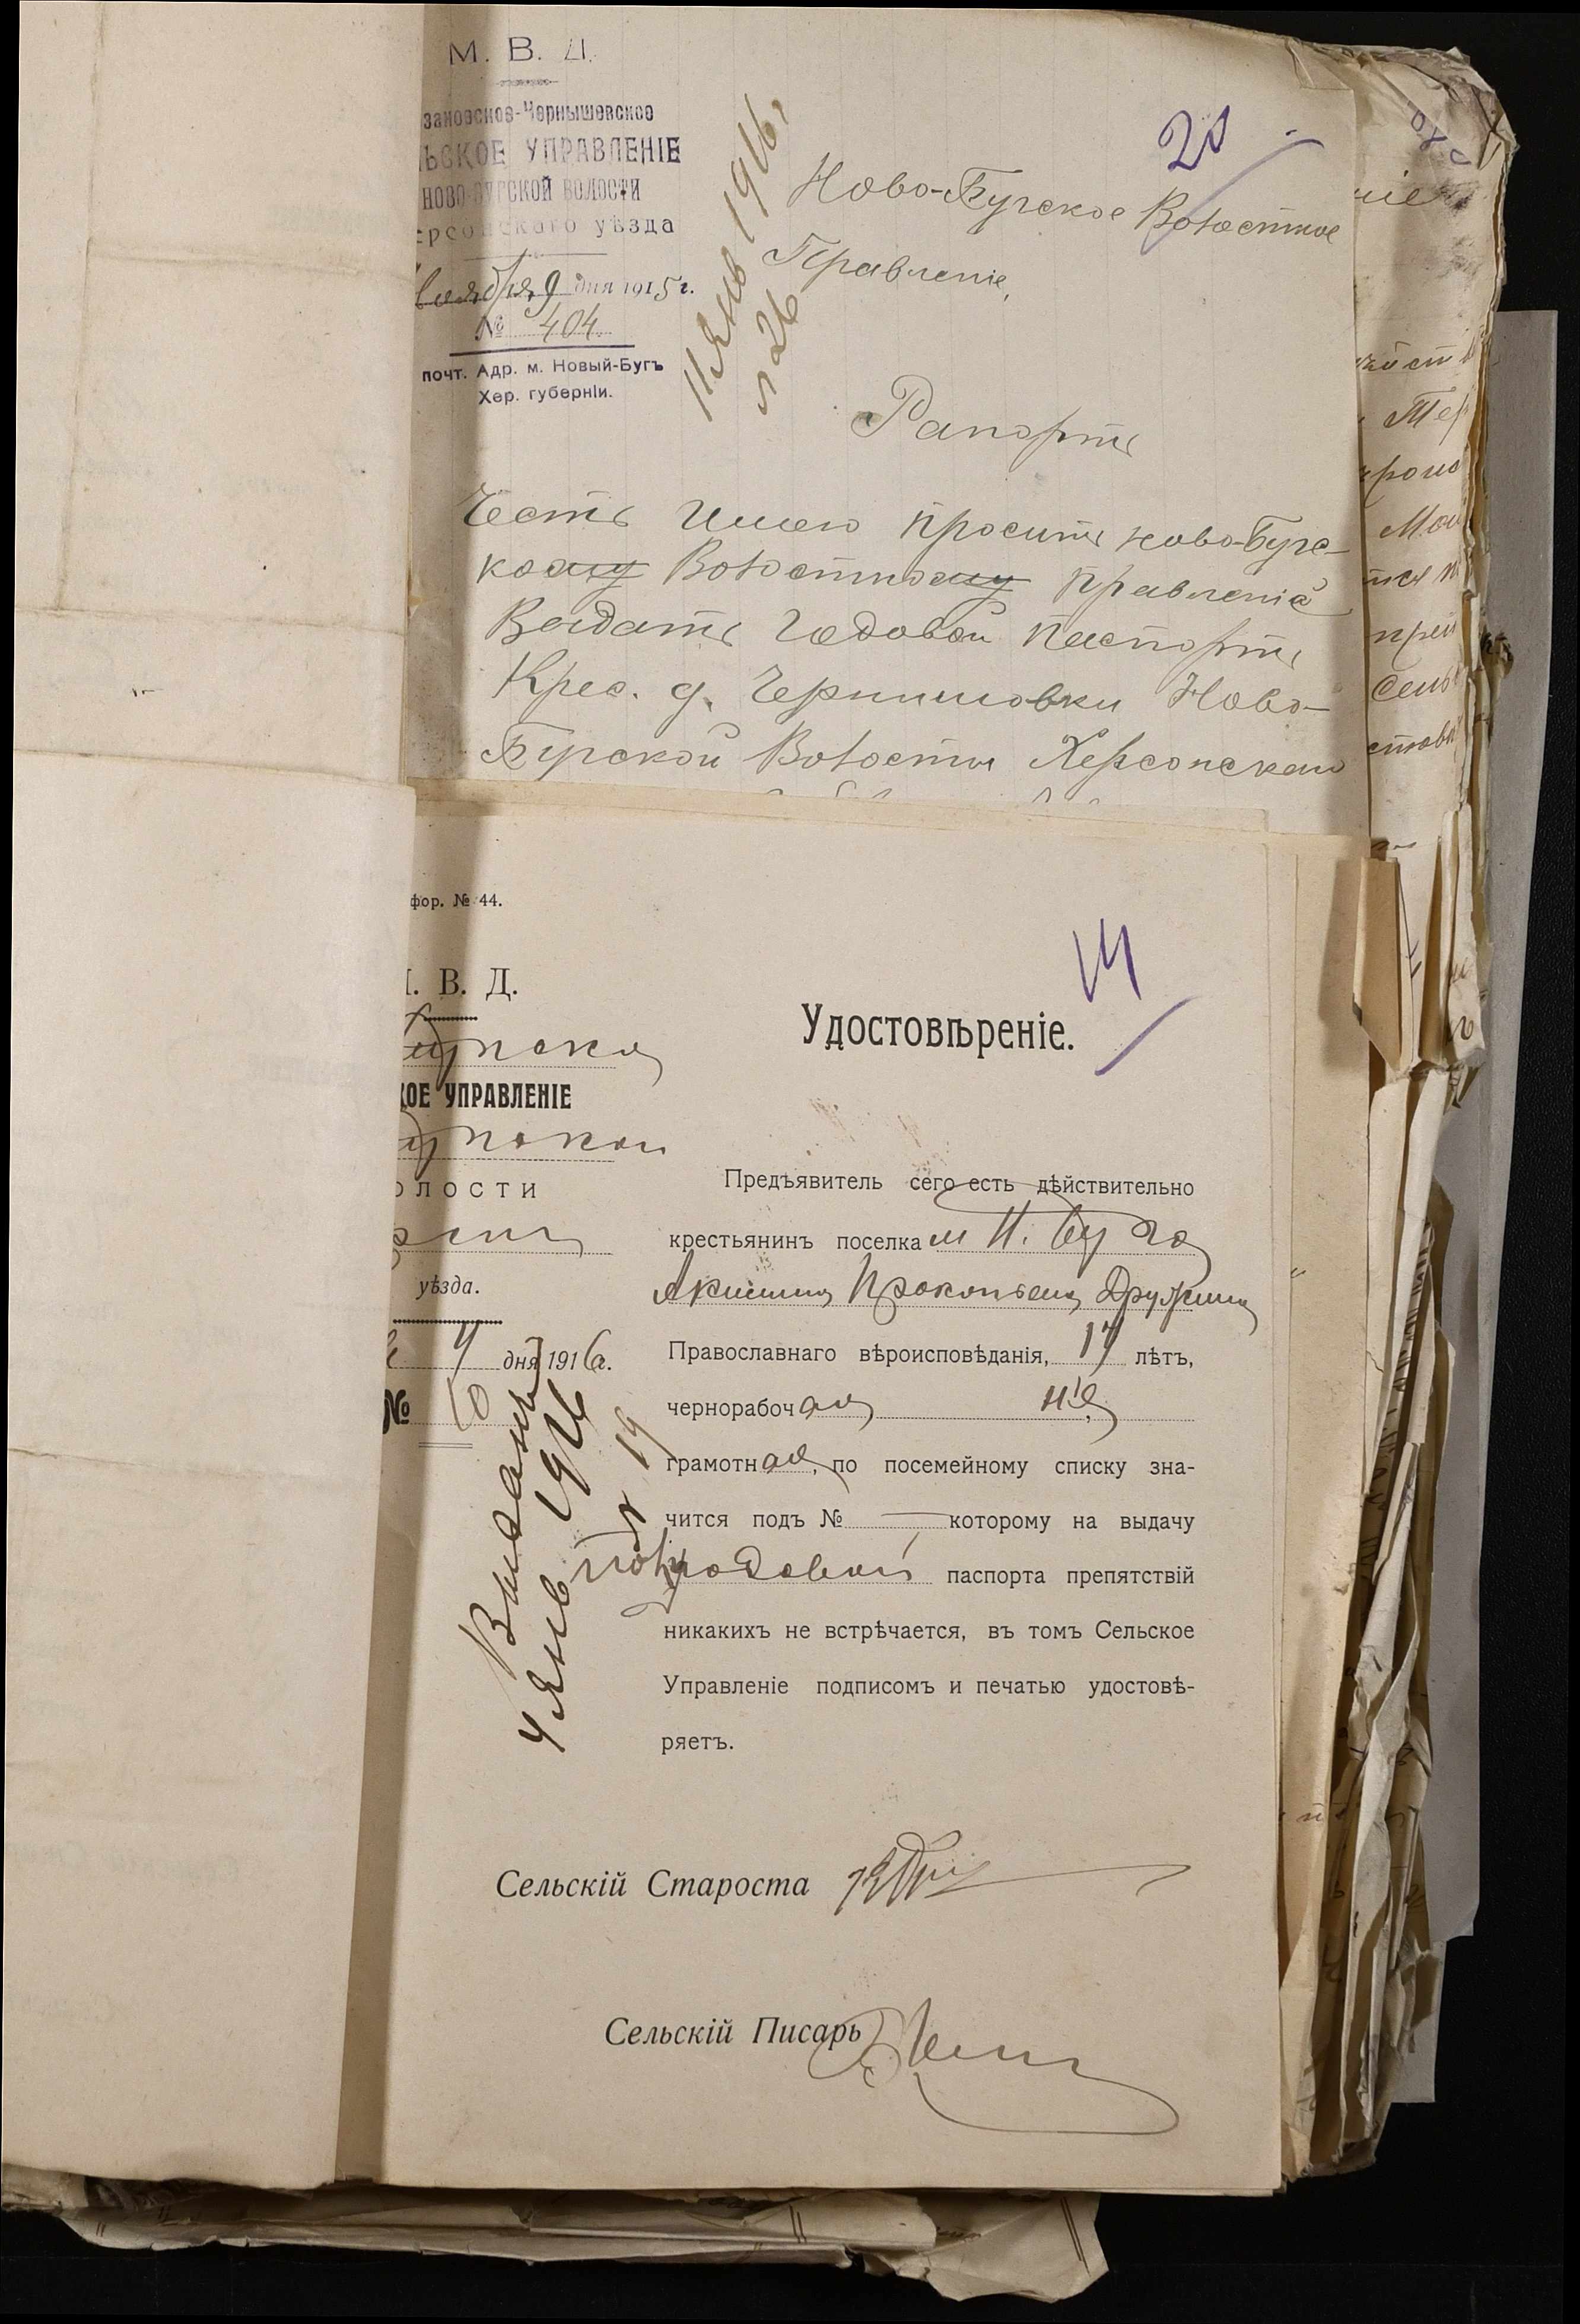 М. В. Д.
зановское-Чернышевское
ЛЬСКОЕ УПРАВЛЕНІЕ
НОВО-БУГСКОЙ ВОЛОСТИ
ерсонскаго уѣзда
9 дня 1915 г.
№ 404
почт. Адр. м. Новый-Бугъ
Хер. губерніи.
11 Янв 1916
№ 26
20
Ново-Бугское Волостное
Правленіе,
Рапортъ
Честь Имею просить ново-Бугс-
кому Волостному правленіе
Выдать Годовой паспортъ
Крес. д. Чернишовки Ново-
Бугской Волости Херсонскаго
фор. № 44.
М. В. Д.
КОЕ УПРАВЛЕНІЕ
олости
уѣзда.
4 дня 1916 г.
№ 10
14
Удостовѣреніе.
Предъявитель сего есть дѣйствительно
крестьянинъ поселка м Н. Буга
Прокопьева
Православнаго вѣроисповѣданія, 17 лѣтъ,
чернорабочая не
грамотная, по посемейному списку зна-
чится подъ № — которому на выдачу
полугодовой паспорта препятствій
никакихъ не встрѣчается, въ томъ Сельское
Управленіе подписомъ и печатью удостовѣ-
ряетъ.
4 Янв 1916
№ 19
Сельскій Староста
Сельскій Писарь